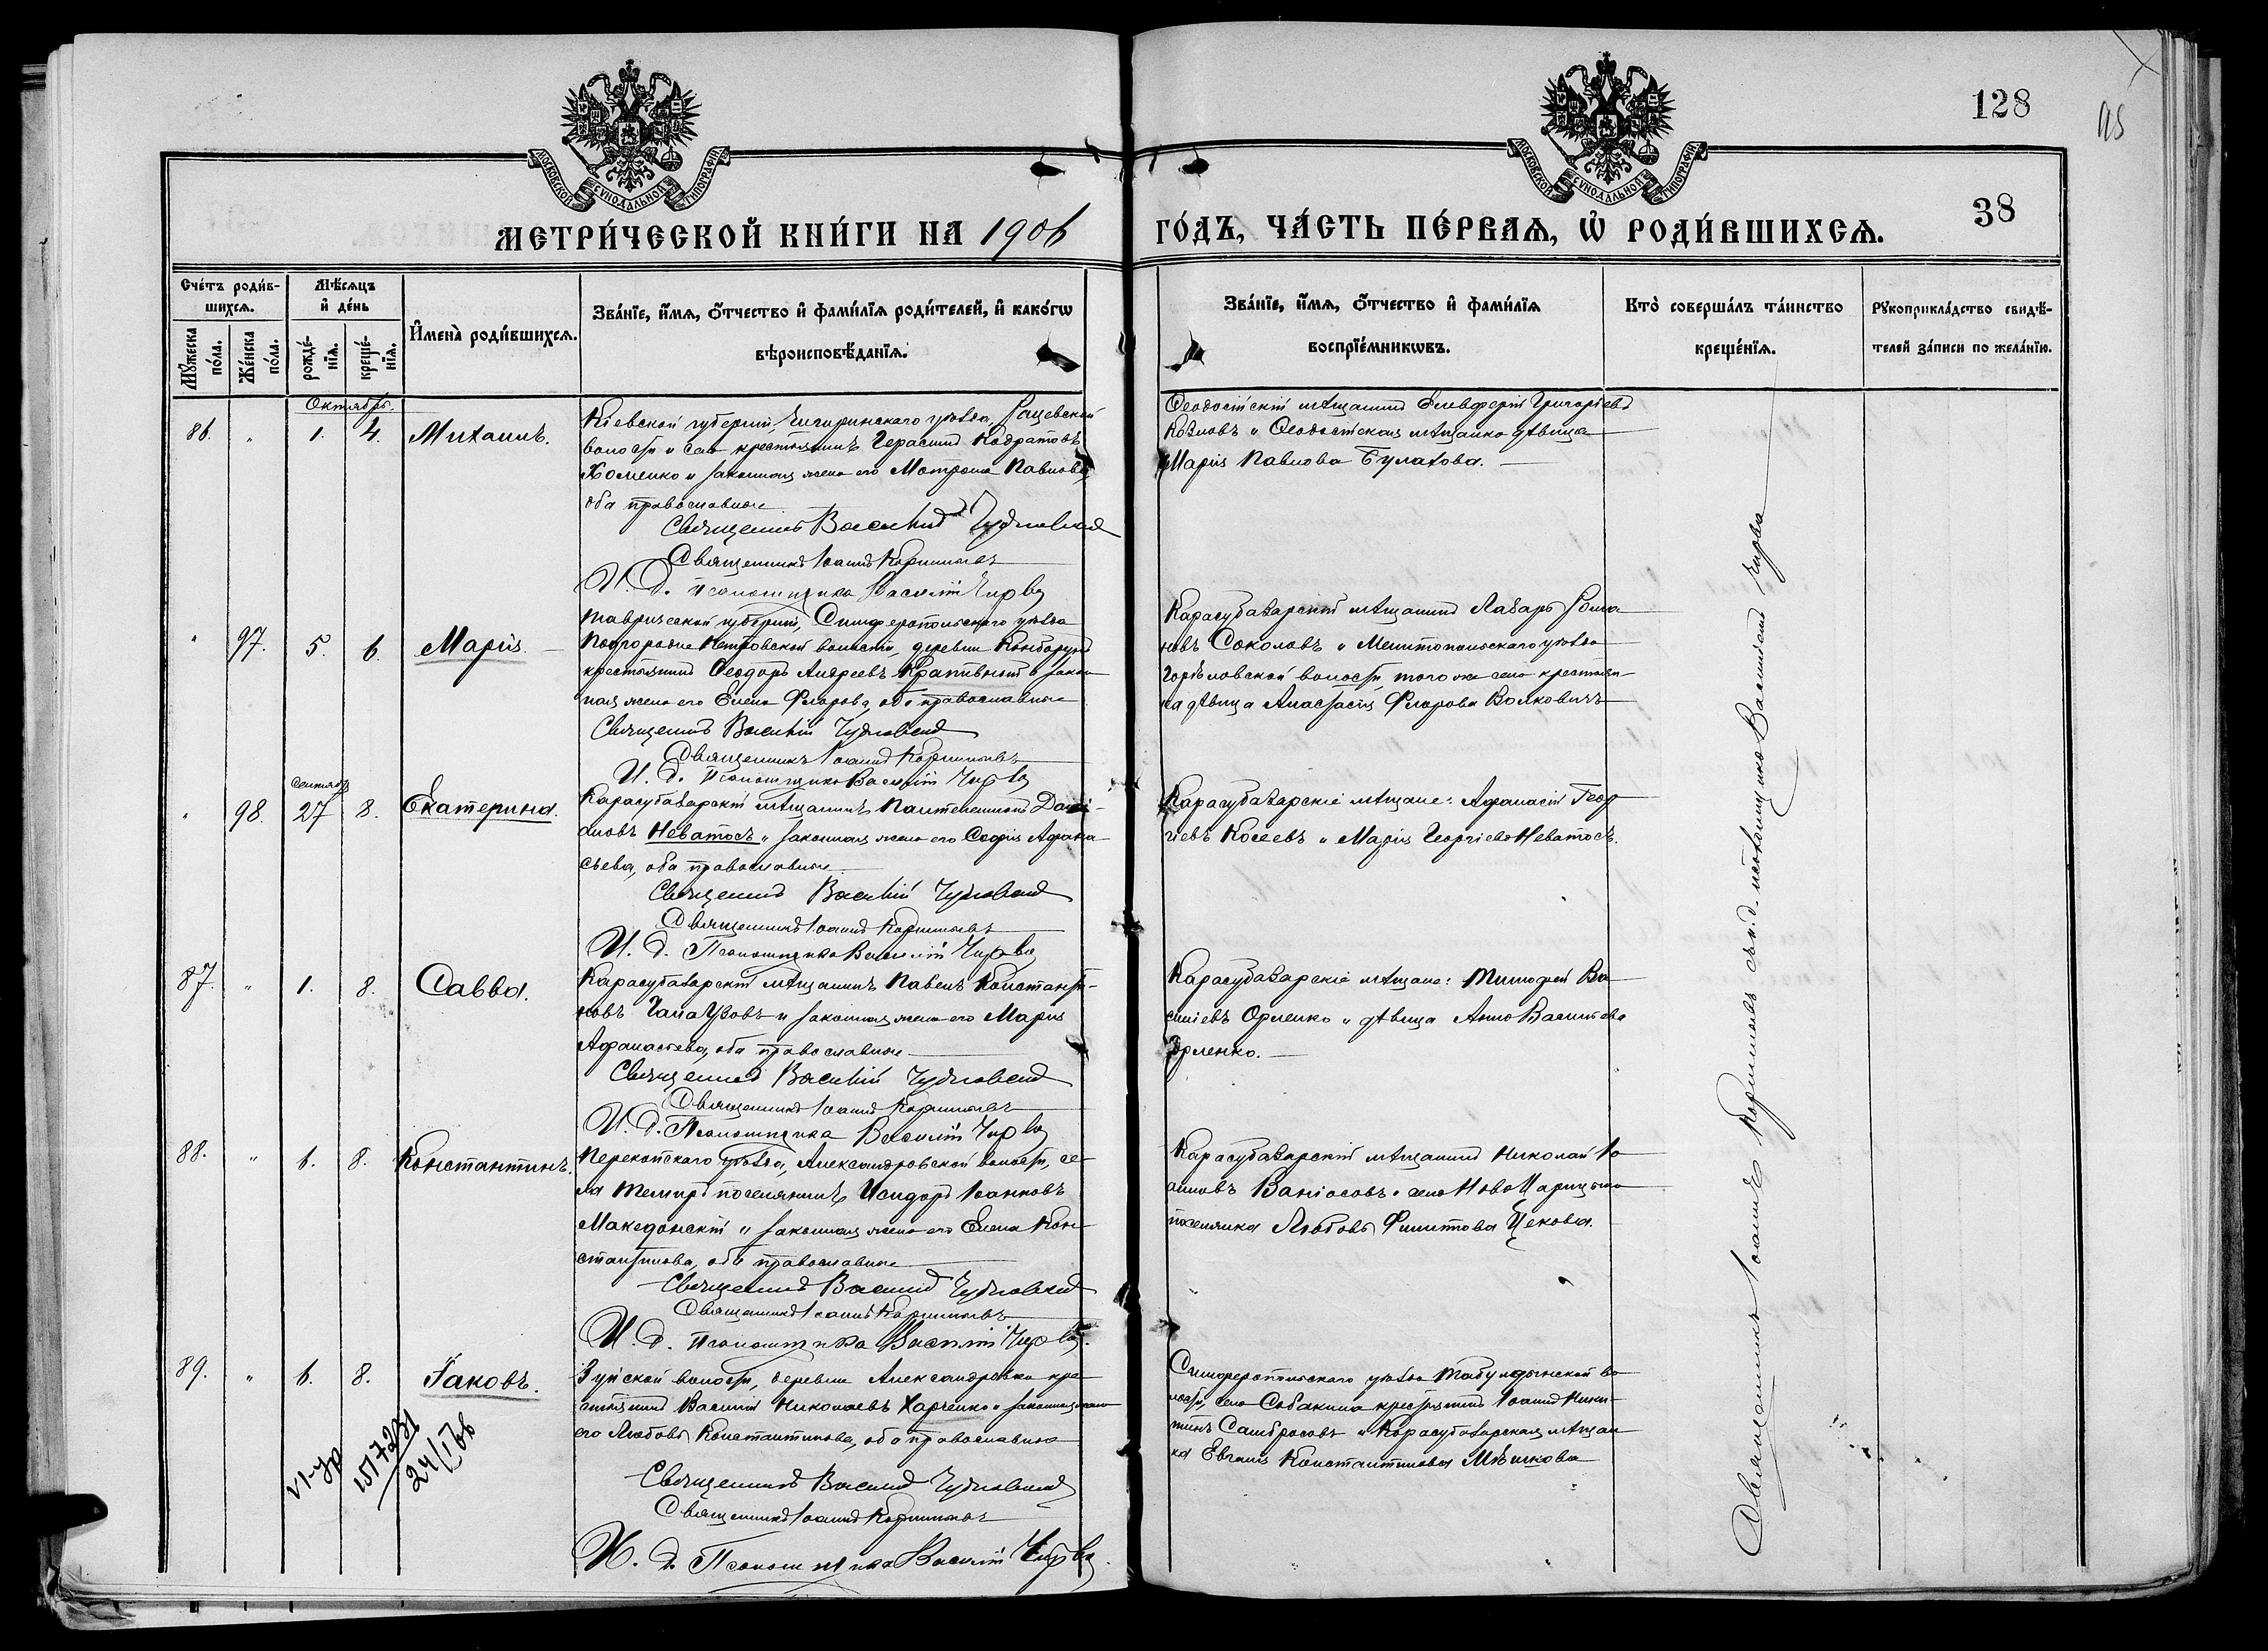 128
125
МОСКОВСКОЙ СѴНОДАЛЬНОЙ ТИПОГРАФІИ
МОСКОВСКОЙ СѴНОДАЛЬНОЙ ТИПОГРАФІИ
38
МЕТРИ́ЧЕСКОЙ КНИ́ГИ НА 1906
ГО́ДЪ, ЧА́СТЬ ПЕ́РВАѦ, Ѽ РОДИ́ВШИХСѦ.
Сче́тъ роди́вшихсѧ.
Мꙋ́жеска по́ла.
Же́нска по́ла.
Мѣ́сяцъ и҆ де́нь
рожде́нїѧ.
креще́нїѧ.
И҆мена̀ роди́вшихсѧ.
Зва́нїе, и҆́мѧ, ѻ҆́тчество и҆ фами́лїѧ роди́телей, и҆ како́гѡ
вѣроисповѣ́данїѧ.
Зва́нїе, и҆́мѧ, ѻ҆́тчество и҆ фами́лїѧ
воспрїе́мникѡвъ.
Кто̀ соверша́лъ та́инство
креще́нїѧ.
Рꙋкоприкла́дство свидѣ́-
телей за́писи по жела́нїю.
Октябрь.
86. " 1. 4. Михаилъ.
Кіевской губерніи, Чигиринскаго уѣзда, Рацевской
волости и села крестьянинъ Герасимъ Кодратовъ
Хоменко и законная жена его Матрона Павлова,
оба православные
Священникъ Василій Чудновскій
Священникъ Іоаннъ Коршиновъ
И. д. Псаломщика Василій Чирва
Ѳеодосійскій мѣщанинъ Елевферій Григорьевъ
Козловъ и Ѳеодосійская мѣщанка дѣвица
Марія Павлова Булахова.
" 97. 5. 6. Марія.
Таврической губерніи, Симферопольскаго уѣзда
Подгородне Петровской волости, деревни
крестьянинъ Ѳеодоръ Андреевъ Крапивный и закон-
ная жена его Елена Флорова, оба православные
Священникъ Василій Чудновскій
Священникъ Іоаннъ Коршиновъ
И. д. Псаломщика Василій Чирва
Карасубазарскій мѣщанинъ Лазарь Рома-
новъ Соколовъ и Мелитопольскаго уѣзда
волости, того же села крестьян-
ка дѣвица Анастасія Флорова Волковичъ
Сентябрь
" 98. 27 8. Екатерина.
Карасубазарскій мѣщанинъ Пантелеимонъ Дамі-
ановъ Неватосъ и законная жена его Софія Афана-
сьева, оба православные
Священникъ Василій Чудновскій
Священникъ Іоаннъ Коршиновъ
И. д. Псаломщика Василій Чирва
Карасубазарскіе мѣщане: Афанасій Геор-
гіевъ Косеевъ и Марія Георгіева Неватосъ.
87. " 1. 8. Савва.
Карасубазарскій мѣщанинъ Павелъ Константи-
новъ и законная жена его Марія
Афанасьева, оба православные
Священникъ Василій Чудновскій
Священникъ Іоаннъ Коршиновъ
И. д. Псаломщика Василій Чирва
Карасубазарскіе мѣщане: Тимофей Ва-
сильевъ Орленко и дѣвица Анна Васильева
Орленко.
88. " 6. 8. Константинъ.
Перекопскаго уѣзда, Александровской волости, се-
ла Темиръ поселянинъ Исидоръ Іоанновъ
Македонскій и законная жена его Елена Кон-
стантинова, оба православные
Священникъ Василій Чудновскій
Священникъ Іоаннъ Коршиновъ
И. д. Псаломщика Василій Чирва.
Карасубазарскій мѣщанинъ Николай Іо-
анновъ Ваніосовъ и села Ново Царицыно
поселянка Любовь Филиппова Цекова.
89. " 6. 8. Іаковъ.
Зуйской волости, деревни Александровки кре-
стьянинъ Василій Николаевъ Харченко и законная жена
его Любовь Константинова, оба православные
Священникъ Василій Чудновскій
Священникъ Іоаннъ Коршиновъ
И. д. Псаломщика Василій Чирва.
Симферопольскаго уѣзда Табулдынской во-
лости, села Собакина крестьянинъ Іоаннъ Ники-
тинъ Самбросовъ и Карасубазарская мѣщан-
ка Евгенія Константинова Мѣшкова
VI-ур
1517231
24/I 66
Священникъ Іоаннъ Коршиновъ съ и. д. псаломщика Василіемъ Чирва